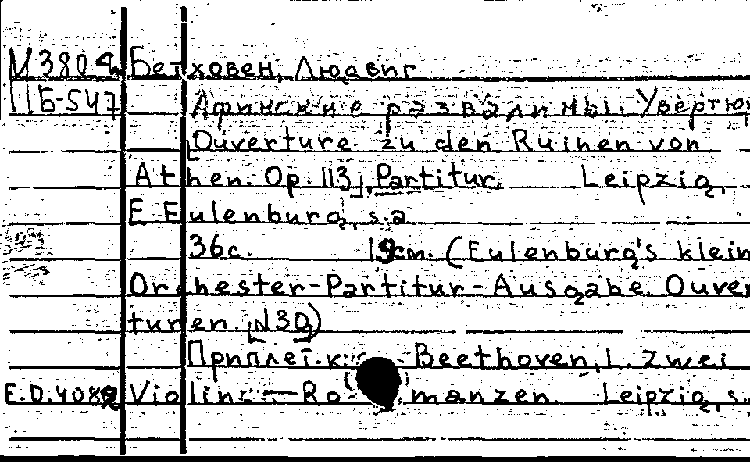 М3804 Бетховен, Людвиг
ПБ-547 Афинские развалины. Увертюр
[Ouverture zu den Ruinen von
Athen. Op. 113], Partitur. Leipzig,
E. Eulenburg, s.a.
36с. 19cm. (Eulenburg's klein
Orchester-Partitur-Ausgabe. Ouver
turen. [N30])
Приплет. к: Beethoven, L. Zwei
E.D.4082 Violin-Romanzen. Leipzig, s.